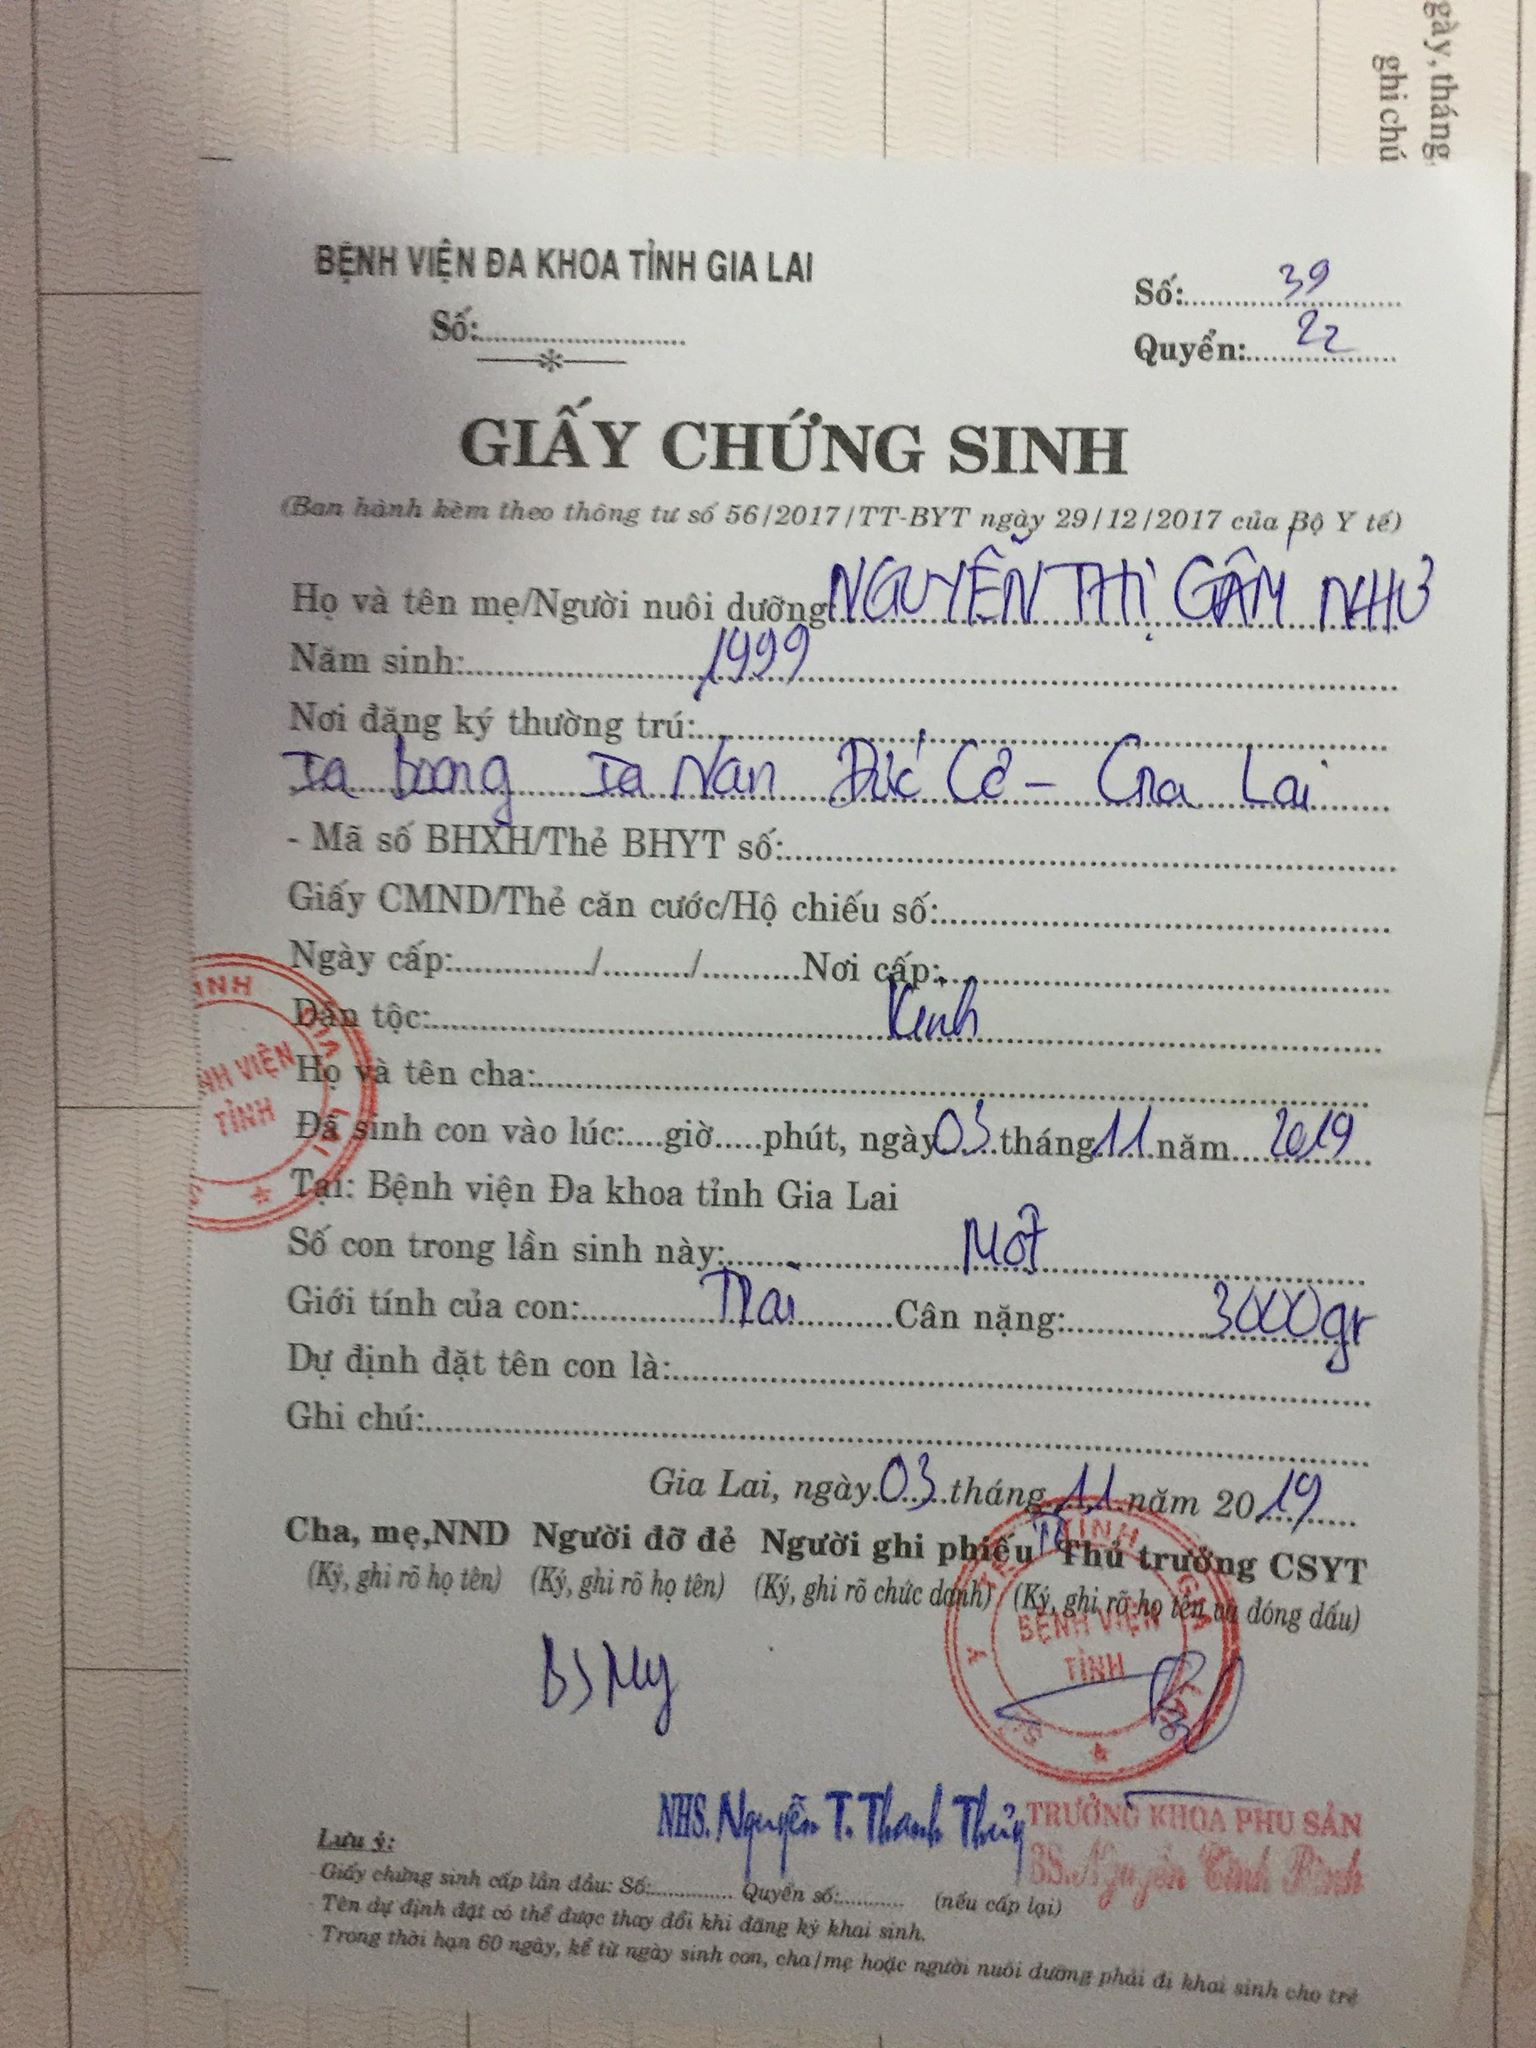 gày, tháng
ghi chú
BỆNH VIỆN ĐA KHOA TỈNH GIA LAI
Số:
Số: 39
Quyển: 22
GIẤY CHỨNG SINH
(Ban hành kèm theo thông tư số 56/2017/TT-BYT ngày 29/12/2017 của Bộ Y tế)
Họ và tên mẹ/Người nuôi dưỡng: NGUYỄN THỊ GẤM NHƯ
Năm sinh: 1999
Nơi đăng ký thường trú:
Ia Boong Ia Nan Đức Cơ - Gia Lai
- Mã số BHXH/Thẻ BHYT số:
Giấy CMND/Thẻ căn cước/Hộ chiếu số:
Ngày cấp: / / Nơi cấp:
Dân tộc: Kinh
Họ và tên cha:
Đã sinh con vào lúc: giờ phút, ngày 03 tháng 11 năm 2019
Tại: Bệnh viện Đa khoa tỉnh Gia Lai
Số con trong lần sinh này: Một
Giới tính của con: Trai Cân nặng: 3000gr
Dự định đặt tên con là:
Ghi chú:
Gia Lai, ngày 03 tháng 11 năm 2019
Cha, mẹ,NND Người đỡ đẻ Người ghi phiếu Thủ trưởng CSYT
(Ký, ghi rõ họ tên) (Ký, ghi rõ họ tên) (Ký, ghi rõ chức danh) (Ký, ghi rõ họ tên và đóng dấu)
BỆNH VIỆN
TỈNH
BS My
NHS. Nguyễn T. Thanh Thủy
TRƯỞNG KHOA PHỤ SẢN
BS. Nguyễn
Lưu ý:
- Giấy chứng sinh cấp lần đầu: Số: Quyển số: (nếu cấp lại)
- Tên dự định đặt có thể được thay đổi khi đăng ký khai sinh.
- Trong thời hạn 60 ngày, kể từ ngày sinh con, cha/mẹ hoặc người nuôi dưỡng phải đi khai sinh cho trẻ